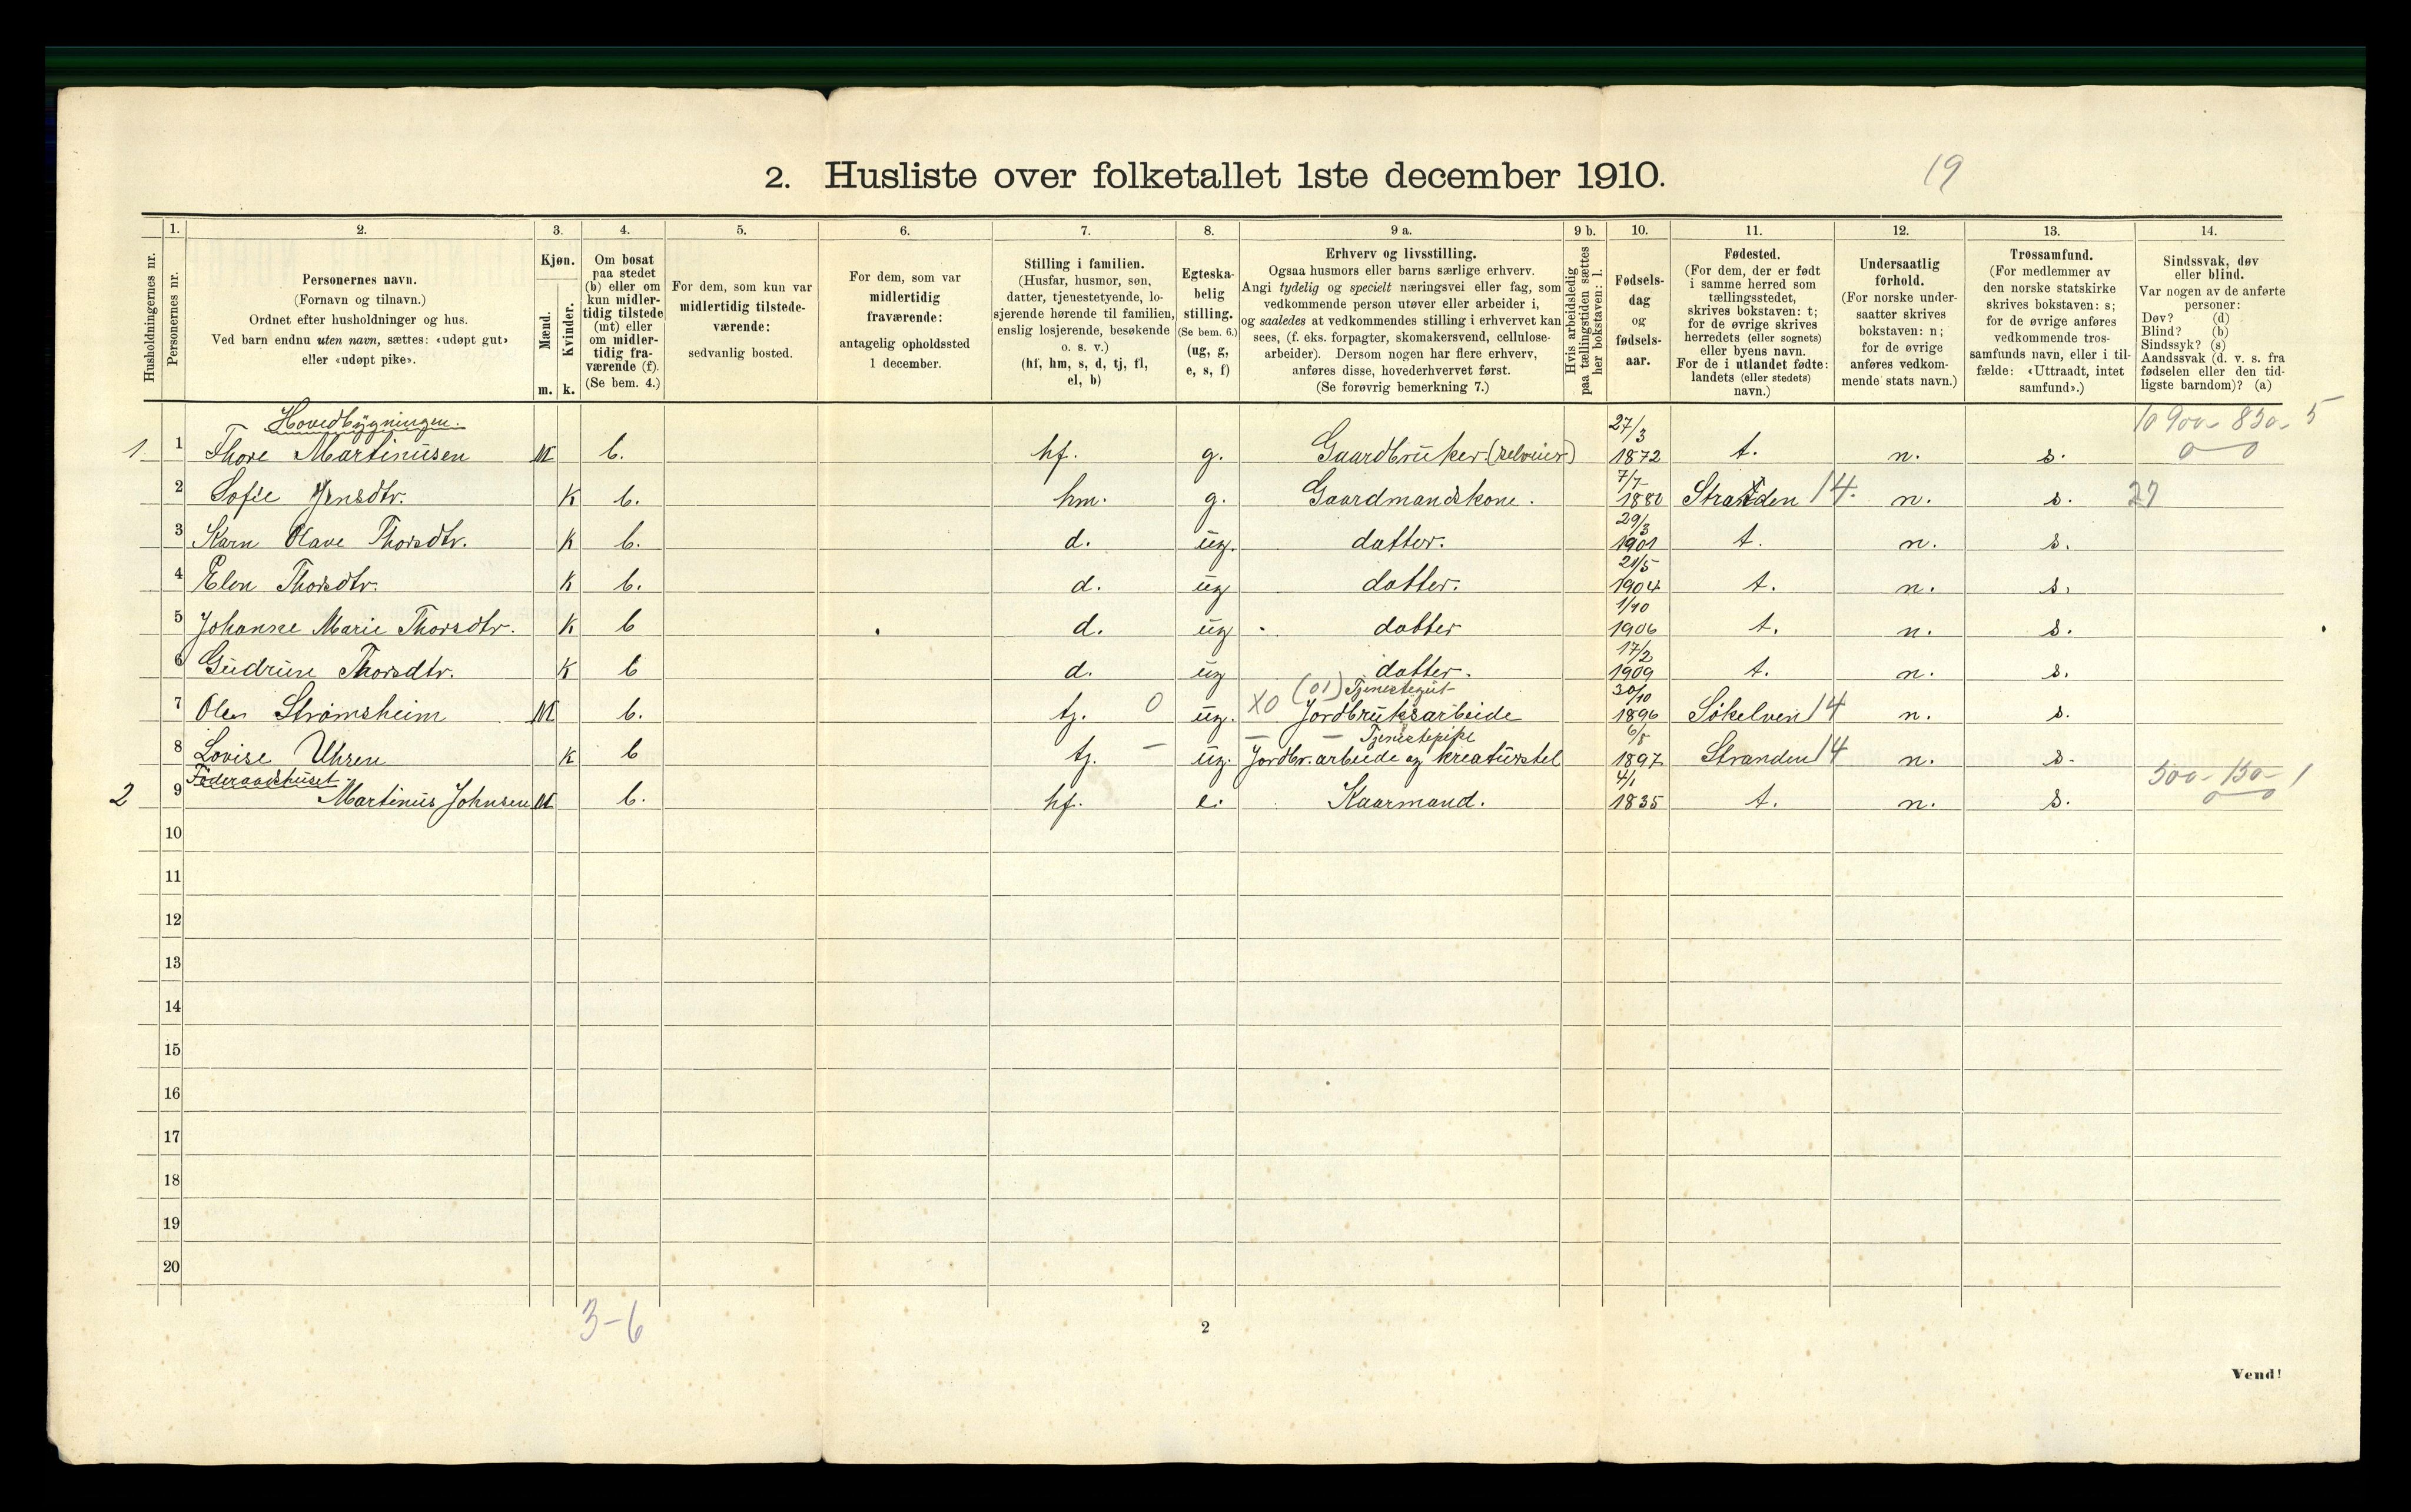 2. Husliste over folketallet 1ste december 1910.
19
Husholdningernes nr.
1.
Personernes nr.
2.
Personernes navn.
(Fornavn og tilnavn.)
Ordnet efter husholdninger og hus.
Ved barn endnu uten navn, sættes: «udøpt gut»
eller «udøpt pike».
3.
Kjøn.
Mænd.
Kvinder.
m. k.
4.
Om bosat
paa stedet
(b) eller om
kun midler-
tidig tilstede
(mt) eller
om midler-
tidig fra-
værende (f).
(Se bem. 4.)
5.
For dem, som kun var
midlertidig tilstede-
værende:
sedvanlig bosted.
6.
For dem, som var
midlertidig
fraværende:
antagelig opholdssted
1 december.
7.
Stilling i familien.
(Husfar, husmor, søn,
datter, tjenestetyende, lo-
sjerende hørende til familien,
enslig losjerende, besøkende
o. s. v.)
(hf, hm, s, d, tj, fl,
el, b)
8.
Egteska-
belig
stilling.
(Se bem. 6.)
(ug, g,
e, s, f)
9 a.
Erhverv og livsstilling.
Ogsaa husmors eller barns særlige erhverv.
Angi tydelig og specielt næringsvei eller fag, som
vedkommende person utøver eller arbeider i,
og saaledes at vedkommendes stilling i erhvervet kan
sees, (f. eks. forpagter, skomakersvend, cellulose-
arbeider). Dersom nogen har flere erhverv,
anføres disse, hovederhvervet først.
(Se forøvrig bemerkning 7.)
9 b.
Hvis arbeidsledig
paa tællingstiden sættes
her bokstaven: l.
10.
Fødsels-
dag
og
fødsels-
aar.
11.
Fødested.
(For dem, der er født
i samme herred som
tællingsstedet,
skrives bokstaven: t;
for de øvrige skrives
herredets (eller sognets)
eller byens navn.
For de i utlandet fødte:
landets (eller stedets)
navn.)
12.
Undersaatlig
forhold.
(For norske under-
saatter skrives
bokstaven: n;
for de øvrige
anføres vedkom-
mende stats navn.)
13.
Trossamfund.
(For medlemmer av
den norske statskirke
skrives bokstaven: s;
for de øvrige anføres
vedkommende tros-
samfunds navn, eller i til-
fælde: «Uttraadt, intet
samfund».)
14.
Sindssvak, døv
eller blind.
Var nogen av de anførte
personer:
Døv? (d)
Blind? (b)
Sindssyk? (s)
Aandssvak (d. v. s. fra
fødselen eller den tid-
ligste barndom)? (a)
Hovedbygningen.
1 1 Thore Martinusen M b. hf. g. Gaardbruker (selveier) 27/3 1872 t. n. s. 10 900- 850- 5 0 0
2 Sofie Jensdtr. K b. hm. g. Gaardmandskone. 7/7 1880 Stranden 14. n. s. 27
3 Karn Olave Thorsdtr. K b. d. ug. datter. 29/3 1901 t. n. s.
4 Elen Thorsdtr. K b. d. ug datter. 21/5 1904 t. n. s.
5 Johanne Marie Thorsdtr. K b d. ug datter 1/10 1906 t. n. s.
6 Gudrun Thorsdtr. K b d. ug datter. 17/2 1909 t. n. s.
7 Olen Strømsheim M b. tj. 0 ug. X0 (01) Tjenestegut Jordbruksarbeide 30/10 1896 Søkelven 14 n. s.
8 Lovise Uhren K b tj. - ug. - - Tjenestepike Jordbr. arbeide og kreaturstel 6/8 1897 Stranden 14 n. s.
Føderaadshuset
2 9 Martinus Johnsen M b. hf. e. Kaarmand. 4/1 1835 t. n. s. 500- 150- 1 0 0
10
11
12
13
14
15
16
17
18
19
20
3-6
2
Vend!